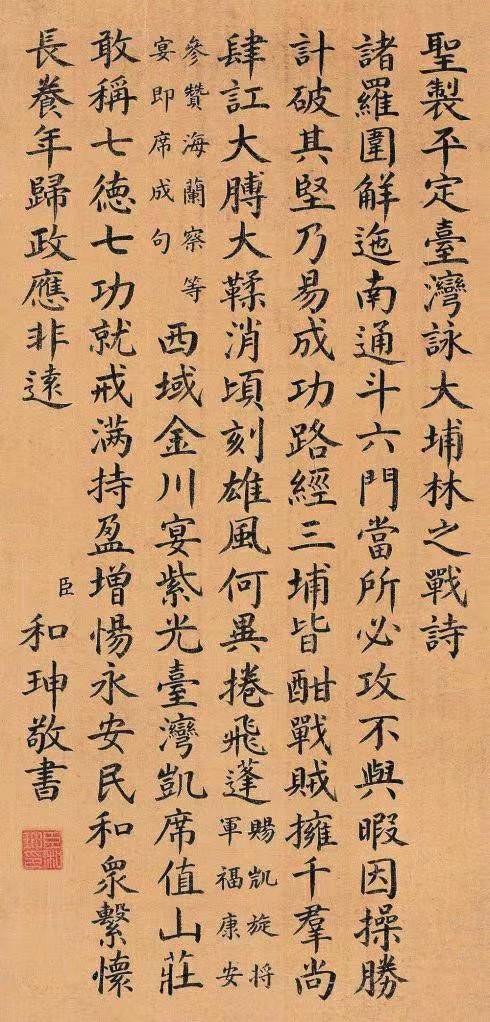 聖製平定臺灣詠大埔林之戰詩
諸羅圍解迤南通斗六門當所必攻不與暇因操勝
計破其堅乃易成功路經三埔皆酣戰賊擁千羣尚
肆訌大膊大鞣消頃刻雄風何異捲飛蓬賜凱旋将
軍福康安
參贊海蘭察等
宴即席成句
西域金川宴紫光臺灣凱席值山莊
敢稱七徳七功就戒满持盈增惕永安民和衆繫懷
長養年歸政應非遠
臣和珅敬書